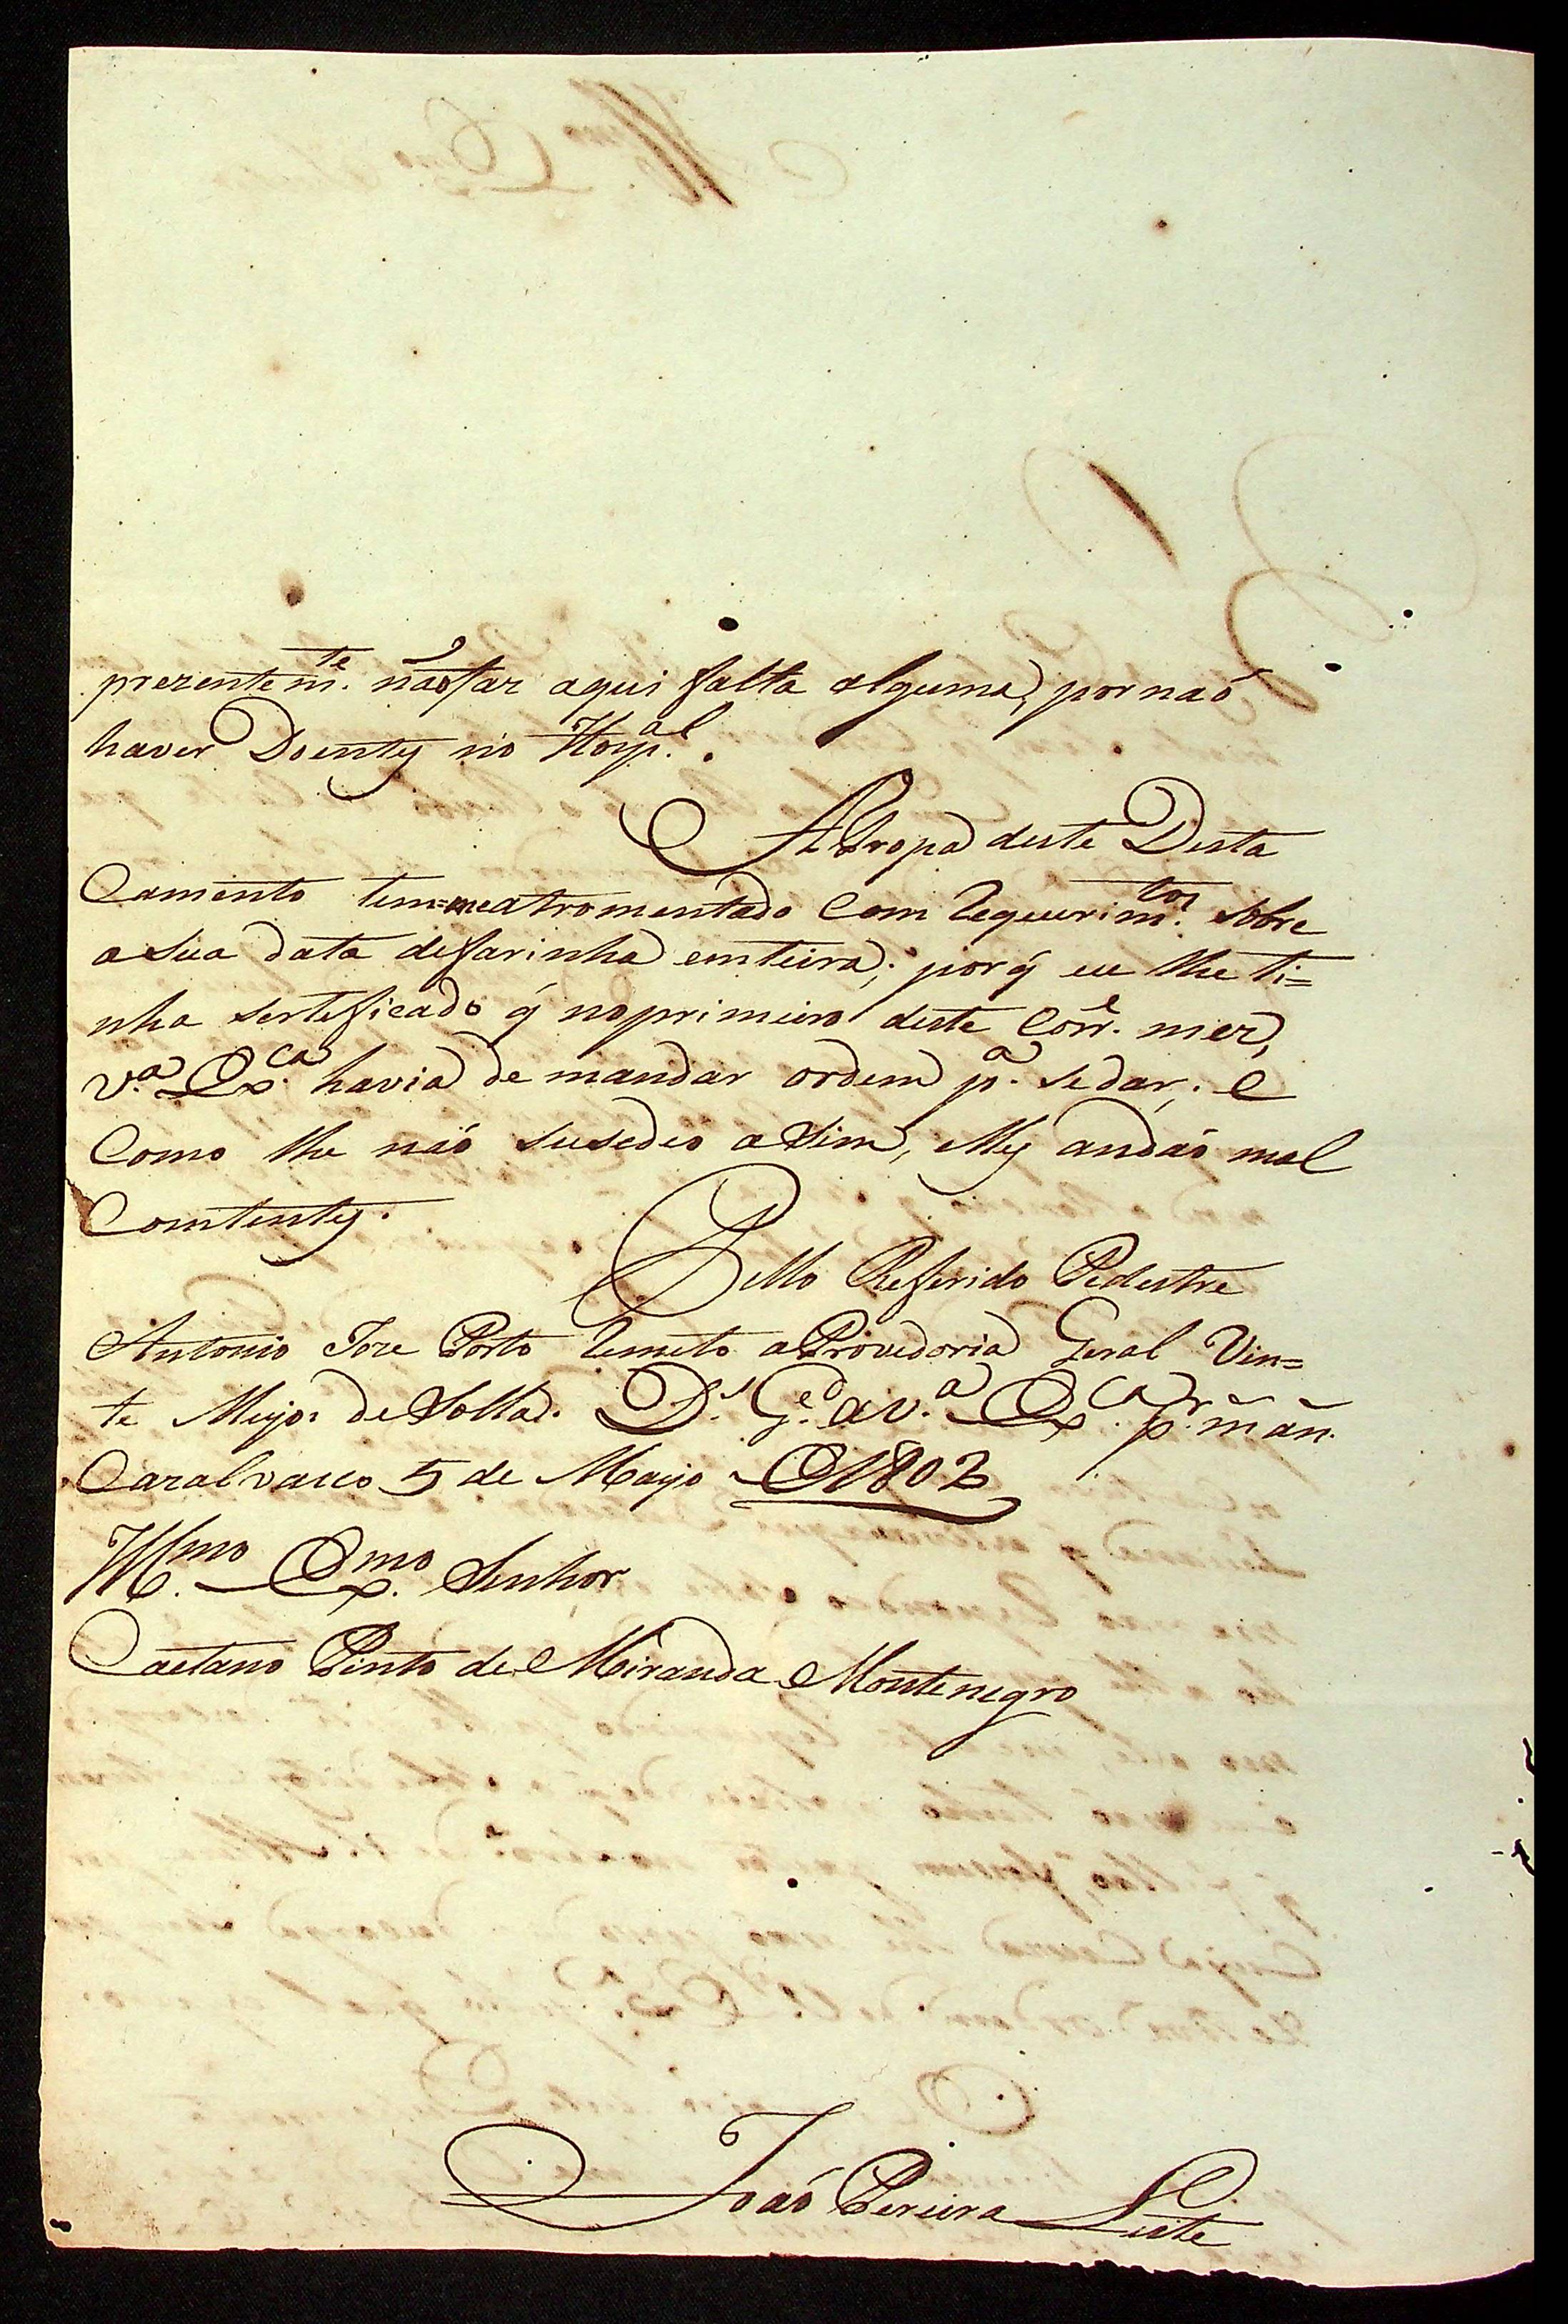 prezentem.te naõ faz aqui falta alguma, por naõ
haver Doentes no Hosp.al.
A Tropa deste Desta
Camento tem=me atromentado Com requerim.tos sobre
a sua data de farinha emteira; por q̃ eu lhe ti=
nha serteficado q̃ no primeiro deste Corr.e mez,
v.a Ex.ca havia de mandar ordem p.a se dar; e
Como lhe naõ susedeo asim, elles andaõ mal
Comtentes.
Pello Referido Pedestre
Antonio Joze Porto remeto a Provedoria Geral Vin=
te Meyos de Solla. D.s G.e a v.a Ex.ca p.r m. an.
Cazalvasco 5 de Mayo de 1802
Ill.mo Ex.mo Senhor
Caetano Pinto de Miranda Montenegro
Joaõ Pereira Leite